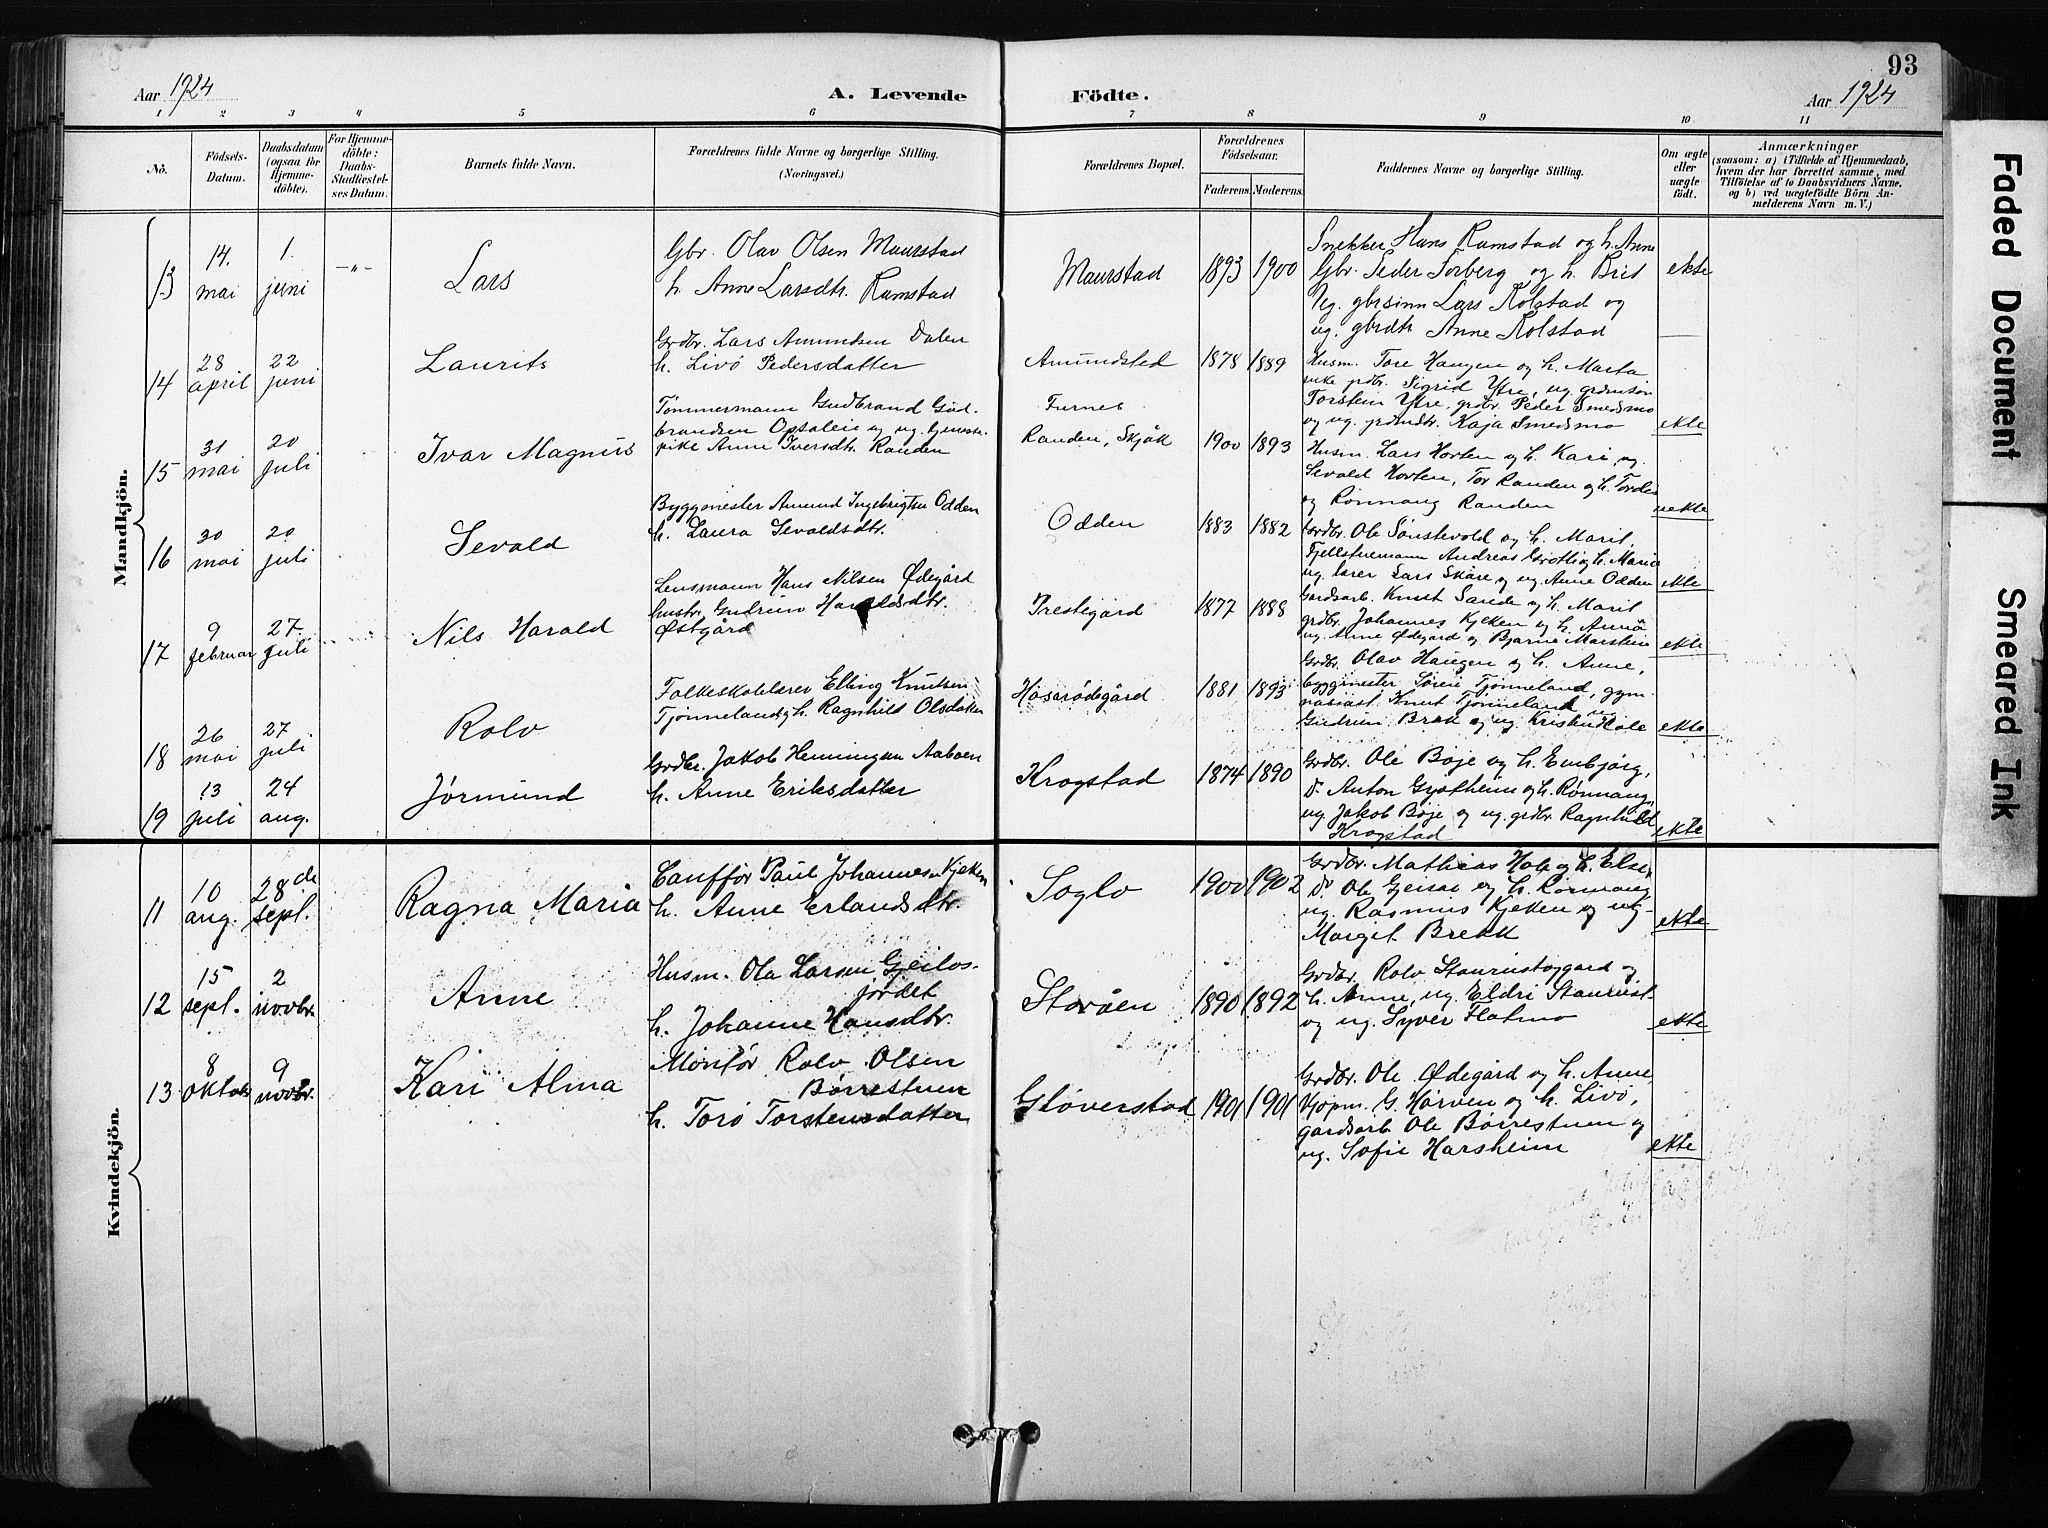 93
Aar 1924
A. Levende Födte.
Aar 1924
1 2 3 4 5 6 7 8 9 10 11
Nô.
Födsels-Datum.
Daabsdatum (ogsaa for Hjemme-döbte).
For Hjemme-döbte: Daabs-Stadfæstel-ses Datum.
Barnets fulde Navn.
Forældrenes fulde Navne og borgerlige Stilling.
(Næringsvei.)
Forældrenes Bopæl.
Forældrenes Födselsaar.
Faderens. Moderens.
Faddernes Navne og borgerlige Stilling.
Om ægte eller uægte födt.
Anmærkninger
(saasom: a) i Tilfælde af Hjemmedaab,
hvem der har forrettet samme, med
Tilföielse af to Daabsvidners Navne,
og b) ved uægtefödte Börn An-
melderens Navn m. V.)
Mandkjön.
13 14. mai 1. juni —"— Lars
Gbr. Olav Olsen Maurstad
h. Anne Larsdtr. Ramstad
Maurstad 1893 1900
Snekker Hans Ramstad og h. Anne
Gbr. Peder Forberg og h. Brit
Ug. gbrsønn Lars Kolstad og
ug. gbrdtr Anne Kolstad
ekte
14 28 april 22 juni Laurits
Grdbr. Lars Amundsen Dalen
h. Livö Pedersdatter
Amundstad 1878 1889
Husm. Tore Haugen og h. Marta
Sigrid Ytre, ug. grdmsøn
Torstein Ytre, grdbr. Peder Smedsmo
og ug. grdmdtr. Kaja Smedsmo
ekte
15 31 mai 20 juli Ivar Magnus
Tømmermann Gudbrand Gud-
brandsen Opsaleie og ug. tjeneste-
pike Anne Iversdtr. Randen
Furnes
Randen, Skjåk 1900 1893
Husm. Lars Horten og h. Kari, ug.
Sevald Horten, Tor Randen og h. Tordis
og Rønnaug Randen
uekte
16 30 mai 20 juli Sevald
Byggmester Amund Ingebrigtsen Odden
h. Laura Sevaldsdtr.
Odden 1883 1882
Grdbr. Ole Sønstevold og h. Marit,
Andreas Grotli og h. Maria
ug. lærer Lars Skåre og ug. Anne Odden
ekte
17 9 februar 27 juli Nils Harald
Lensmann Hans Nilsen Ødegård
hustr. Gudrun Haraldsdtr.
Østgård
Prestegård 1877 1888
Gardsarb. Knut Sande og h. Marit
grdbr. Johannes Kjeken og h. Anna
ug. Anne Ødegard og Bjarne Marstein
ekte
18 26 mai 27 juli Rolv
Folkeskolelærer Elling Knutsen
Tjønneland og h. Ragnhild Olsdatter
1881 1893
Grdbr. Olav Haugen og h. Anne,
byggmester Søren Tjønneland, gym-
nasiast Knut Tjønneland, ug.
Gudrun Brekk og ug.
ekte
19 13 juli 24 aug. Jørmund
Grdbr. Jakob Henningsen Aaboen
h. Anne Eriksdatter
Krogstad 1874 1890
Grdbr. Ole Bøje og h. Embjørg,
Do. Anton Gjestheim og h. Rønnaug,
ug. Jakob Bøje og ug. grdbr. Ragnhild
Krogstad
ekte
Kvindekjön.
11 10 aug. 28de sept. Ragna Maria
Cauffør Paul Johannesen Kjeken
h. Anne Erlandsdtr.
Soglo 1900 1902
Grdbr. Mathias Hole og h. Else,
Do. Ole Gjeisar og h. Rønnaug
ug. Rasmus Kjeken og ug.
Margit Brekk
ekte
12 15 sept. 2 novbr. Anne
Husm. Ola Larsen Gjeilos-
jordet
h. Johanne Hansdtr.
Storåen 1890 1892
Grdbr. Rolv Staurustøygard og
h. Anne, ug. Eldri Staurust.
og ug. Syver Flatmo
ekte
13 8 oktob. 9 novbr. Kari Alma
Montør Rolv Olsen
Børrestuen
h. Torø Torstensdatter
Gløverstad 1901 1901
Grdbr. Ole Ødegård og h. Anne,
Kjøpm. G. Hørven og h. Livø,
gardsarb. Ole Børrestuen og
ug. Sofie Harsheim
ekte
Faded Document
Smeared Ink